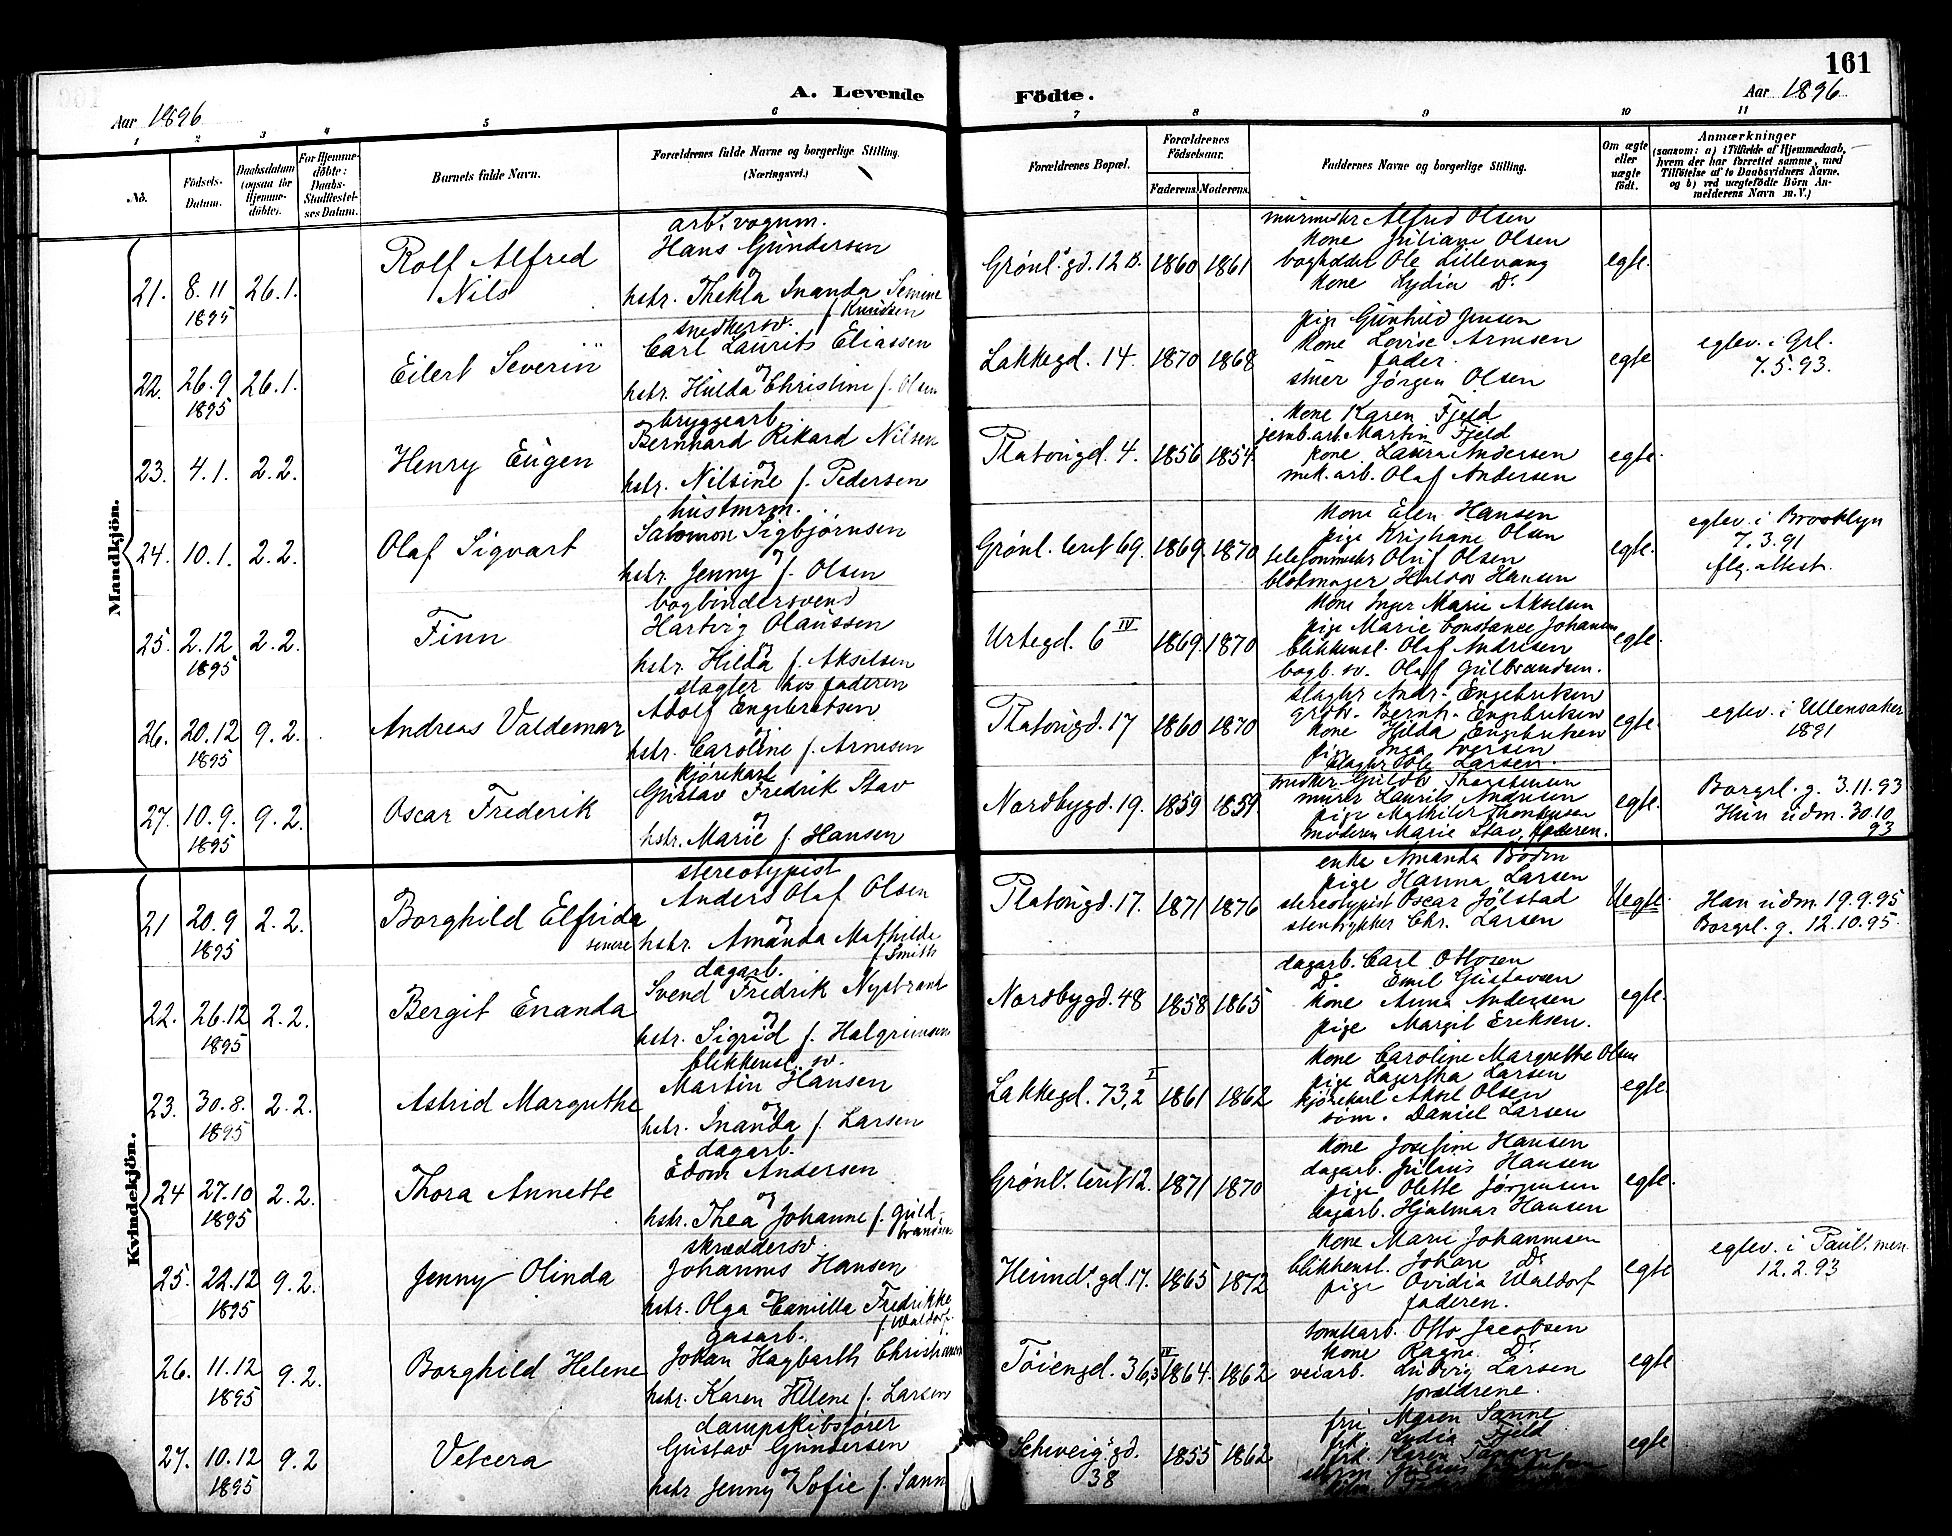 161
A. Levende Födte.
Aar 1896
Aar 1896
1 2 3 4 5 6 7 8 9 10 11
No.
Födsels-Datum.
Daabsdatum (ogsaa for Hjemme-döbte).
For Hjemme-döbte: Daabs-Stadfæstel-ses Datum.
Barnets fulde Navn.
Forældrenes fulde Navne og borgerlige Stilling. (Næringsvei.)
Forældrenes Bopæl.
Forældrenes Födselsaar.
Faderens. Moderens.
Faddernes Navne og borgerlige Stilling.
Om ægte eller uægte födt.
Anmærkninger
(saasom: a) i Tilfælde af Hjemmedaab, hvem der har forrettet samme, med Tilföielse af to Daabsvidners Navne, og b) ved uægtefödte Börn An-melderens Navn m. V.)
Mandkjön.
21. 8.11 1895 26.1.
Rolf Alfred Nils
arb. vognm.
Hans Gundersen
og
hstr. Thekla Inanda Semine f. Knudsen
Grönl. gd. 12 B. 1860 1861
murmester Alfred Olsen
kone Juliane Olsen
bogholder Ole Lillevang
kone Lydia Do
egte.
22. 26.9 1895 26.1.
Eilert Severin
snedkersv.
Carl Laurits Eliassen
og
hstr. Hulda Christine f. Olsen
Lakkegd. 14. 1870 1868
pige Gunhild Jensen
kone Lovise Arnesen
fader.
stuer Jörgen Olsen
egte
egtev. i Grl.
7.5.93.
23. 4.1. 2.2.
Henry Eugen
bryggearb.
Bernhard Rikard Nilsen
og
hstr. Nilsine f. Pedersen
Platougd. 4. 1856 1854.
kone Karen Fjeld
jernb.arb. Martin Fjeld
kone Laura Andersen
mek. arb. Olaf Andersen
egte.
24. 10.1. 2.2.
Olaf Sigvart
hustmrm.
Salomon Sigbjörnsen
og
hstr. Jenny f. Olsen
Grönl. leret 69. 1869. 1870
kone Elen Hansen
pige Kristiane Olsen
telefonmester Oluf Olsen
blokmager Haldor Hansen
egte.
egtev. i Brooklyn
7.3.91
flg. attest.
25. 2.12 1895 2.2.
Finn
bogbindersvend
Hartvig Olaussen
og
hstr. Hilda f. Akselsen
Urtegd. 6 IV 1869. 1870
kone Inger Marie Akselsen
pige Marie Constance Johansen
blikkensl. Olaf Andresen
bogb. sv. Olaf Gulbrandsen.
egte.
26. 20.12 1895 9.2.
Andreas Valdemar
slagter hos faderen
Adolf Engebretsen
og
hstr. Caroline f. Arnesen
Platougd. 17 1860 1870
slagter Andr. Engebretsen
grosv. Bernh. Engebretsen
kone Hilda Engebretsen
pige Inga Iversen
slagter Ole Larsen.
egte.
egtev. i Ullensaker
1891
27. 10.9. 1895 9.2.
Oscar Frederik
kjörekarl
Gustav Fredrik Stav
og
hstr. Marie f. Hansen
Nordbygd. 19. 1859 1859
snedker Guldbr. Thorstensen
murer Laurits Andresen
pige Mathilde Thomassen
moderen Marie Stav, faderen.
egte.
Borgrl. g. 3.11.93
Hun udm. 30.10 93
Kvindekjön.
21 20.9 1895 2.2.
Borghild Elfrida
senere
stereotypist
Anders Olaf Olsen
og
hstr. Amanda Mathilde f. Smith
Platougd. 17. 1871 1876
enke Amanda Bödin
pige Hanna Larsen
stereotypist Oscar Jölstad
stentrykker Chr. Larsen
Uegte.
Han udm. 19.9.95
Borgrl. g. 12.10.95.
22. 26.12 1895 2.2.
Bergit Enanda
dagarb.
Svend Fredrik Nystrand
og
hstr. Sigrid f. Halgrimsen
Nordbygd. 48 1858 1865
dagarb. Carl Ottosen
Do Emil Gustavsen
kone Anna Andersen
pige Margit Eriksen.
egte.
23. 30.8. 1895 2.2.
Astrid Margrethe
blikkensl. sv.
Martin Hansen
og
hstr. Inanda f. Larsen
Lakkegd. 73,2 I 1861 1862
kone Caroline Margrethe Olsen
pige Lagertha Larsen
kjörekarl Aksel Olsen
söm. Daniel Larsen
egte.
24 27.10 1895 2.2.
Thora Annette
dagarb.
Edom Andersen
og
hstr. Thea Johanne f. Guldbrandsen
Grönl. leret 12. 1871 1870
kone Josefine Hansen
dagarb. Julius Hansen
pige Olette Jörgensen
dagarb. Hjalmar Hansen
egte.
25. 22.12 1895 9.2.
Jenny Olinda
skræddersv.
Johannes Hansen
og
hstr. Olga Camilla Fredrikke f. Waldorf
Heimd. gd. 17. 1865 1872
kone Marie Johannesen
blikkensl. Johan Do
pige Ovidia Waldorf
faderen.
egte
egtev. i Paul. men.
12.2.93
26. 11.12 1895 9.2.
Borghild Helene
gasarb.
Johan Hagbarth Christiansen
og
hstr. Karen Helene f. Larsen
Töiengd. 36,3 IV 1864. 1862
tomtearb. Otto Jacobsen
kone Ragne Do
veiarb. Ludvig Larsen
forældrene.
egte
27. 10.12 1895 9.2
Vetcera
dampskibsförer
Gustav Gundersen
og
hstr Jenny Sofie f. Sanne
Schweig. gd. 38 1855 1862
fru Maren Sanne
frk. Lydia Fjeld
frk. Karen
egte